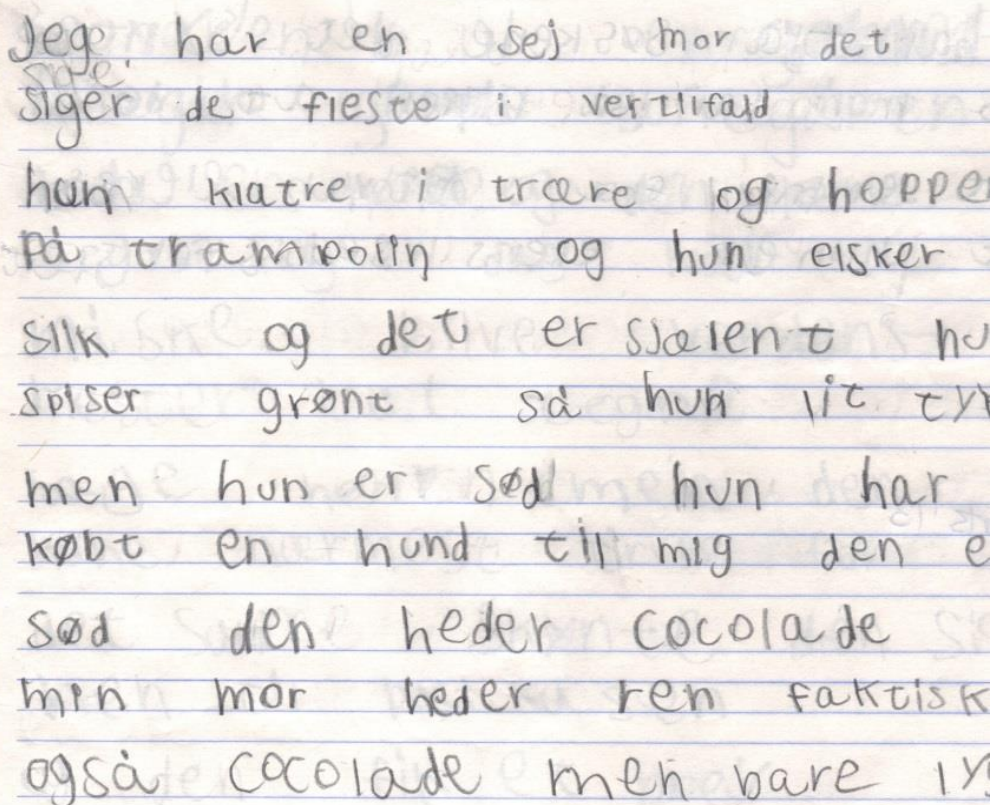 Jege har en sej mor det
siger de fleste i vertlifald
hun klatre i trære og hopper
på trampolin og hun elsker
silk og det er sjælent hu
spiser grønt så hun lit ty
men hun er sød hun har
købt en hund till mig den e
sød den heder cocolade
min mor heder ren faktisk
også cocolade men bare lys